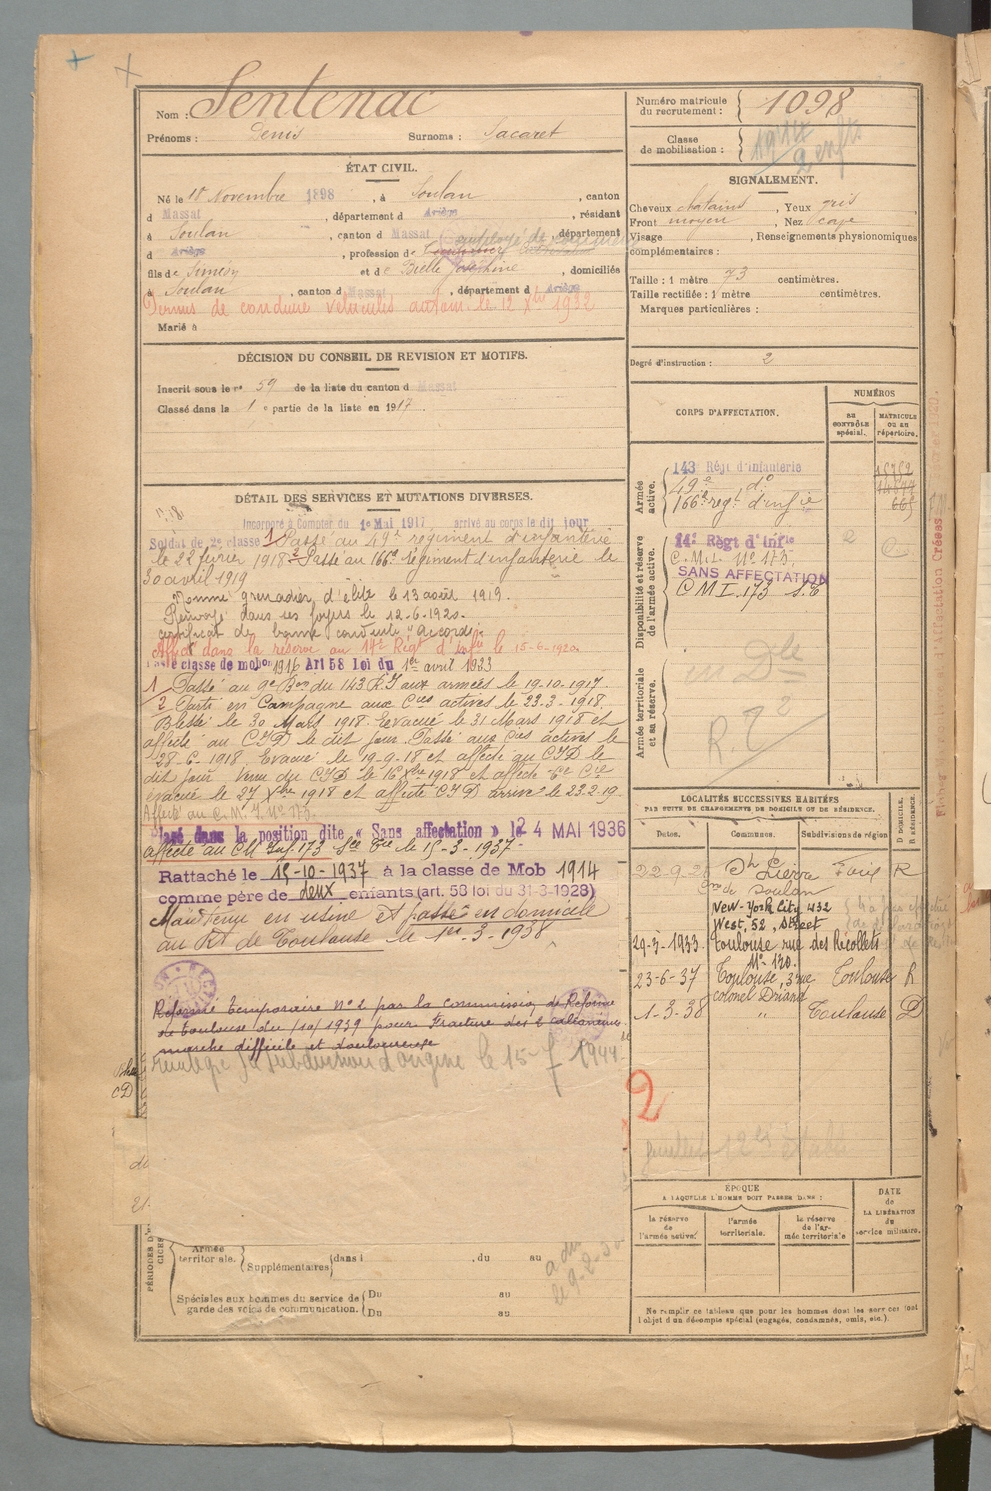 Nom : Sentenac
Prénoms : Denis Surnoms : Sacaret
ÉTAT CIVIL.
Né le 18 Novembre 1898, à Soulan, canton
d Massat, département d Ariège, résidant
à Soulan, canton d Massat, département
d Ariège, profession de employé de
fils de Siméon et de Bielle Joséphine, domiciliés
à Soulan, canton d Massat, département d Ariège
Permis de conduire véhicules autom. le 12 Xbre 1932
Marié à
DÉCISION DU CONSEIL DE REVISION ET MOTIFS.
Inscrit sous le n° 59 de la liste du canton d Massat
Classé dans la 1e partie de la liste en 1917.
DÉTAIL DES SERVICES ET MUTATIONS DIVERSES.
Incorporé à Compter du 1er Mai 1917 arrivé au corps le dit jour
Soldat de 2e classe 1 Passé au 49e régiment d'infanterie
le 22 février 1918 2 Passé au 166e régiment d'infanterie le
30 avril 1919
Nommé grenadier d'élite le 13 août 1919.
Renvoyé dans ses foyers le 12-6-1920.
certificat de bonne conduite "accordé".
Affecté dans la réserve au 14e Régt d'Infie le 15-6-1920.
classe de mobon 1916 Art 58 loi du 1er avril 1933
1 Passé au 9e Bon du 143 R.I aux armées le 19-10-1917.
2 Parti en Campagne aux Cies actives le 23-3-1918.
Blessé le 30 Mars 1918. Evacué le 31 Mars 1918 et
affecté au CID le dit jour. Passé aux Cies actives le
28-6-1918. Evacué le 19-9-18 et affecté au CID le
dit jour. Venu du CID le 16 Xbre 1918 et affecté 6e Cie
évacué le 27 Xbre 1918 et affecté CID arrivé le 23.2.19.
Affecté au C.M.I. N° 173.
dans la position dite « Sans affectation » le 24 MAI 1936
affecté au CM Inf. 173 le 15-3-1937.
Rattaché le 15-10-1937 à la classe de Mob 1914
comme père de deux enfants (art. 58 loi du 31-3-1928)
Maintenu en usine et passé en domicile
au Rt de Toulouse le 1er-3-1938
Réforme temporaire n° 2 par la commission de Réforme
de Toulouse du 1939 pour Fracture des 2 calcaneums
marche difficile et douloureuse
subdivision d'origine le 15-7 1944
Armée territoriale. Supplémentaires dans l , du au
Spéciales aux hommes du service de garde des voies de communication. Du au
Du au
a du
le 9-2-50
Numéro matricule du recrutement : 1098
Classe de mobilisation : 1914
2 enfts
SIGNALEMENT.
Cheveux chatains, Yeux gris
Front moyen, Nez
Visage , Renseignements physionomiques
complémentaires :
Taille : 1 mètre 73 centimètres.
Taille rectifiée : 1 mètre centimètres.
Marques particulières :
Degré d'instruction : 2
CORPS D'AFFECTATION.
NUMÉROS
AU CONTRÔLE spécial.
MATRICULE OU AU répertoire.
Armée active.
143 Régt d'infanterie
49e d°
166e régt d'infie
Disponibilité et réserve de l'armée active.
14e Régt d'Infie
C.M.I. N° 173.
SANS AFFECTATION
CMI.173 S.E
Armée territoriale et sa réserve.
en Dle
LOCALITÉS SUCCESSIVES HABITÉES
PAR SUITE DE CHANGEMENTS DE DOMICILE OU DE RÉSIDENCE.
Dates. Communes. Subdivisions de région D DOMICILE. R RÉSIDENCE.
St Pierre Foix R
Cne de Soulan
New-York City 432
West, 52, Street
29-3-1933 Toulouse rue des Récollets
N° 120.
23-6-37 Toulouse, 3 rue Toulouse R
colonel Driand
1-3-38 " Toulouse D
2
ÉPOQUE
A LAQUELLE L'HOMME DOIT PASSER DANS :
la réserve de l'armée active.
l'armée territoriale.
la réserve de l'armée territoriale
DATE de LA LIBÉRATION du service militaire.
Ne remplir ce tableau que pour les hommes dont les services font l'objet d'un décompte spécial (engagés, condamnés, omis, etc.).